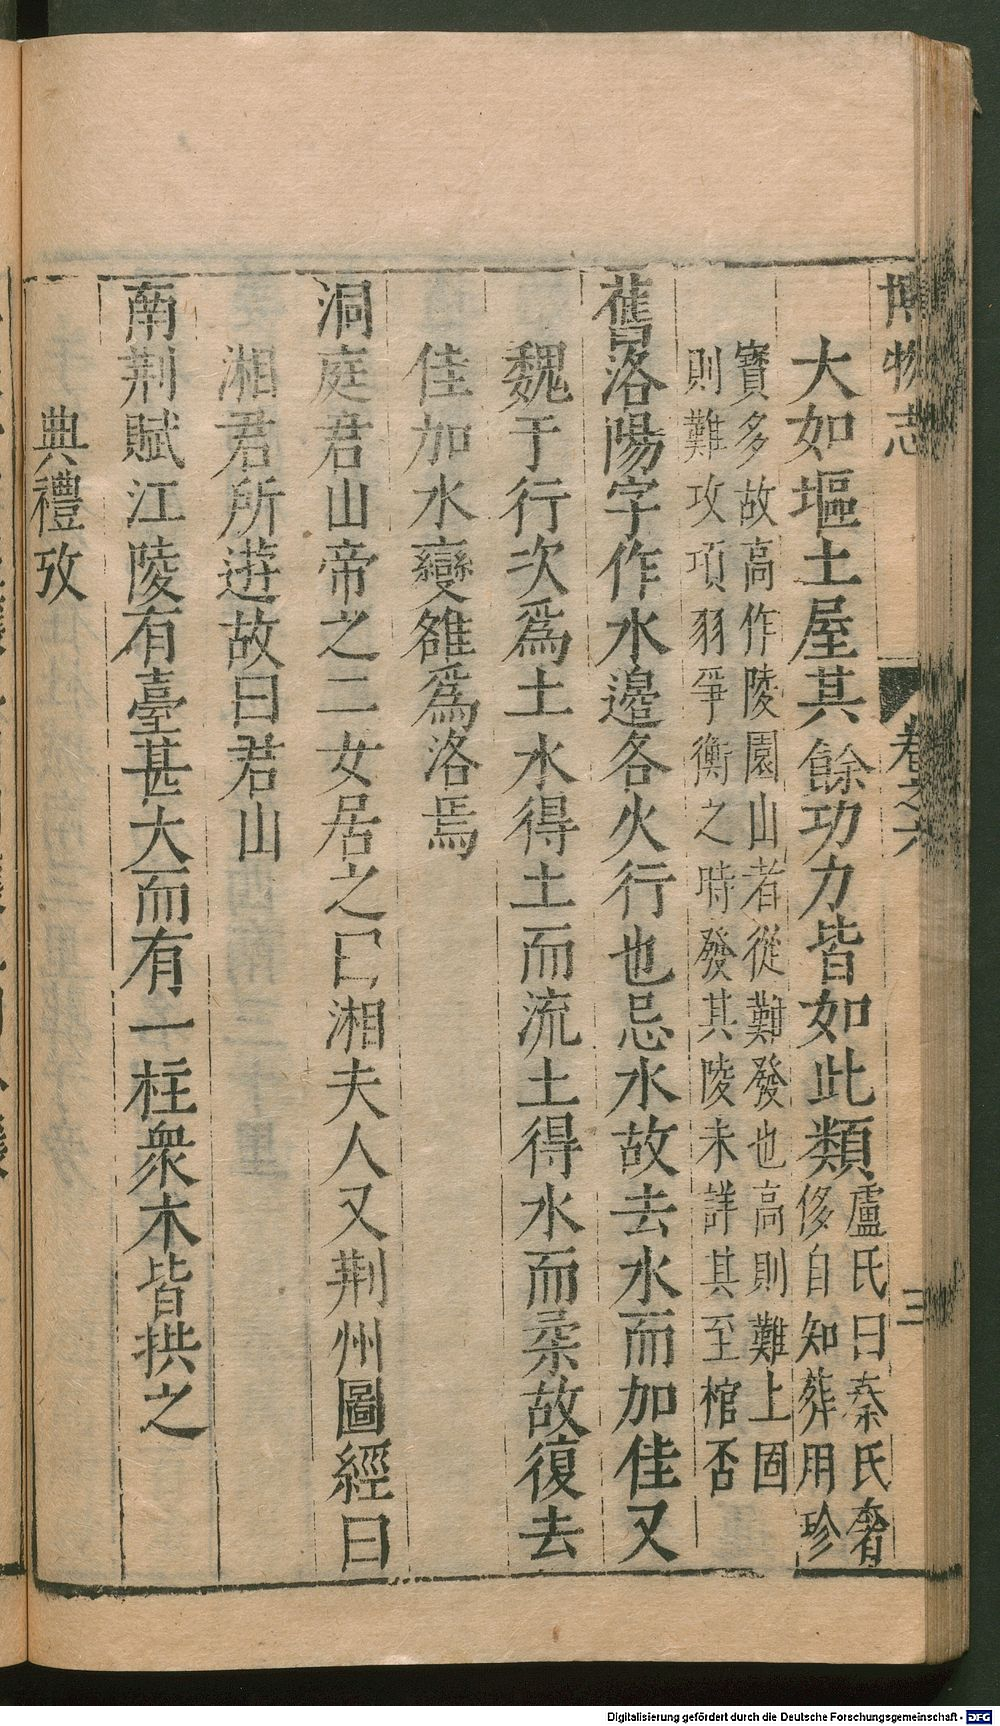 博物志 卷之六 三
大如塸土屋其餘功力皆如此類盧氏曰秦氏奢
侈自知葬用珍
寶多故高作陵園山者從難發也高則難上固
則難攻項羽爭衡之時發其陵未詳其至棺否
舊洛陽字作水邊各火行也忌水故去水而加佳又
魏于行次爲土水得土而流土得水而柔故復去
佳加水變雒爲洛焉
洞庭君山帝之二女居之曰湘夫人又荆州圖經曰
湘君所遊故曰君山
南荆賦江陵有臺甚大而有一柱衆木皆拱之
典禮攷
Digitalisierung gefördert durch die Deutsche Forschungsgemeinschaft - DFG